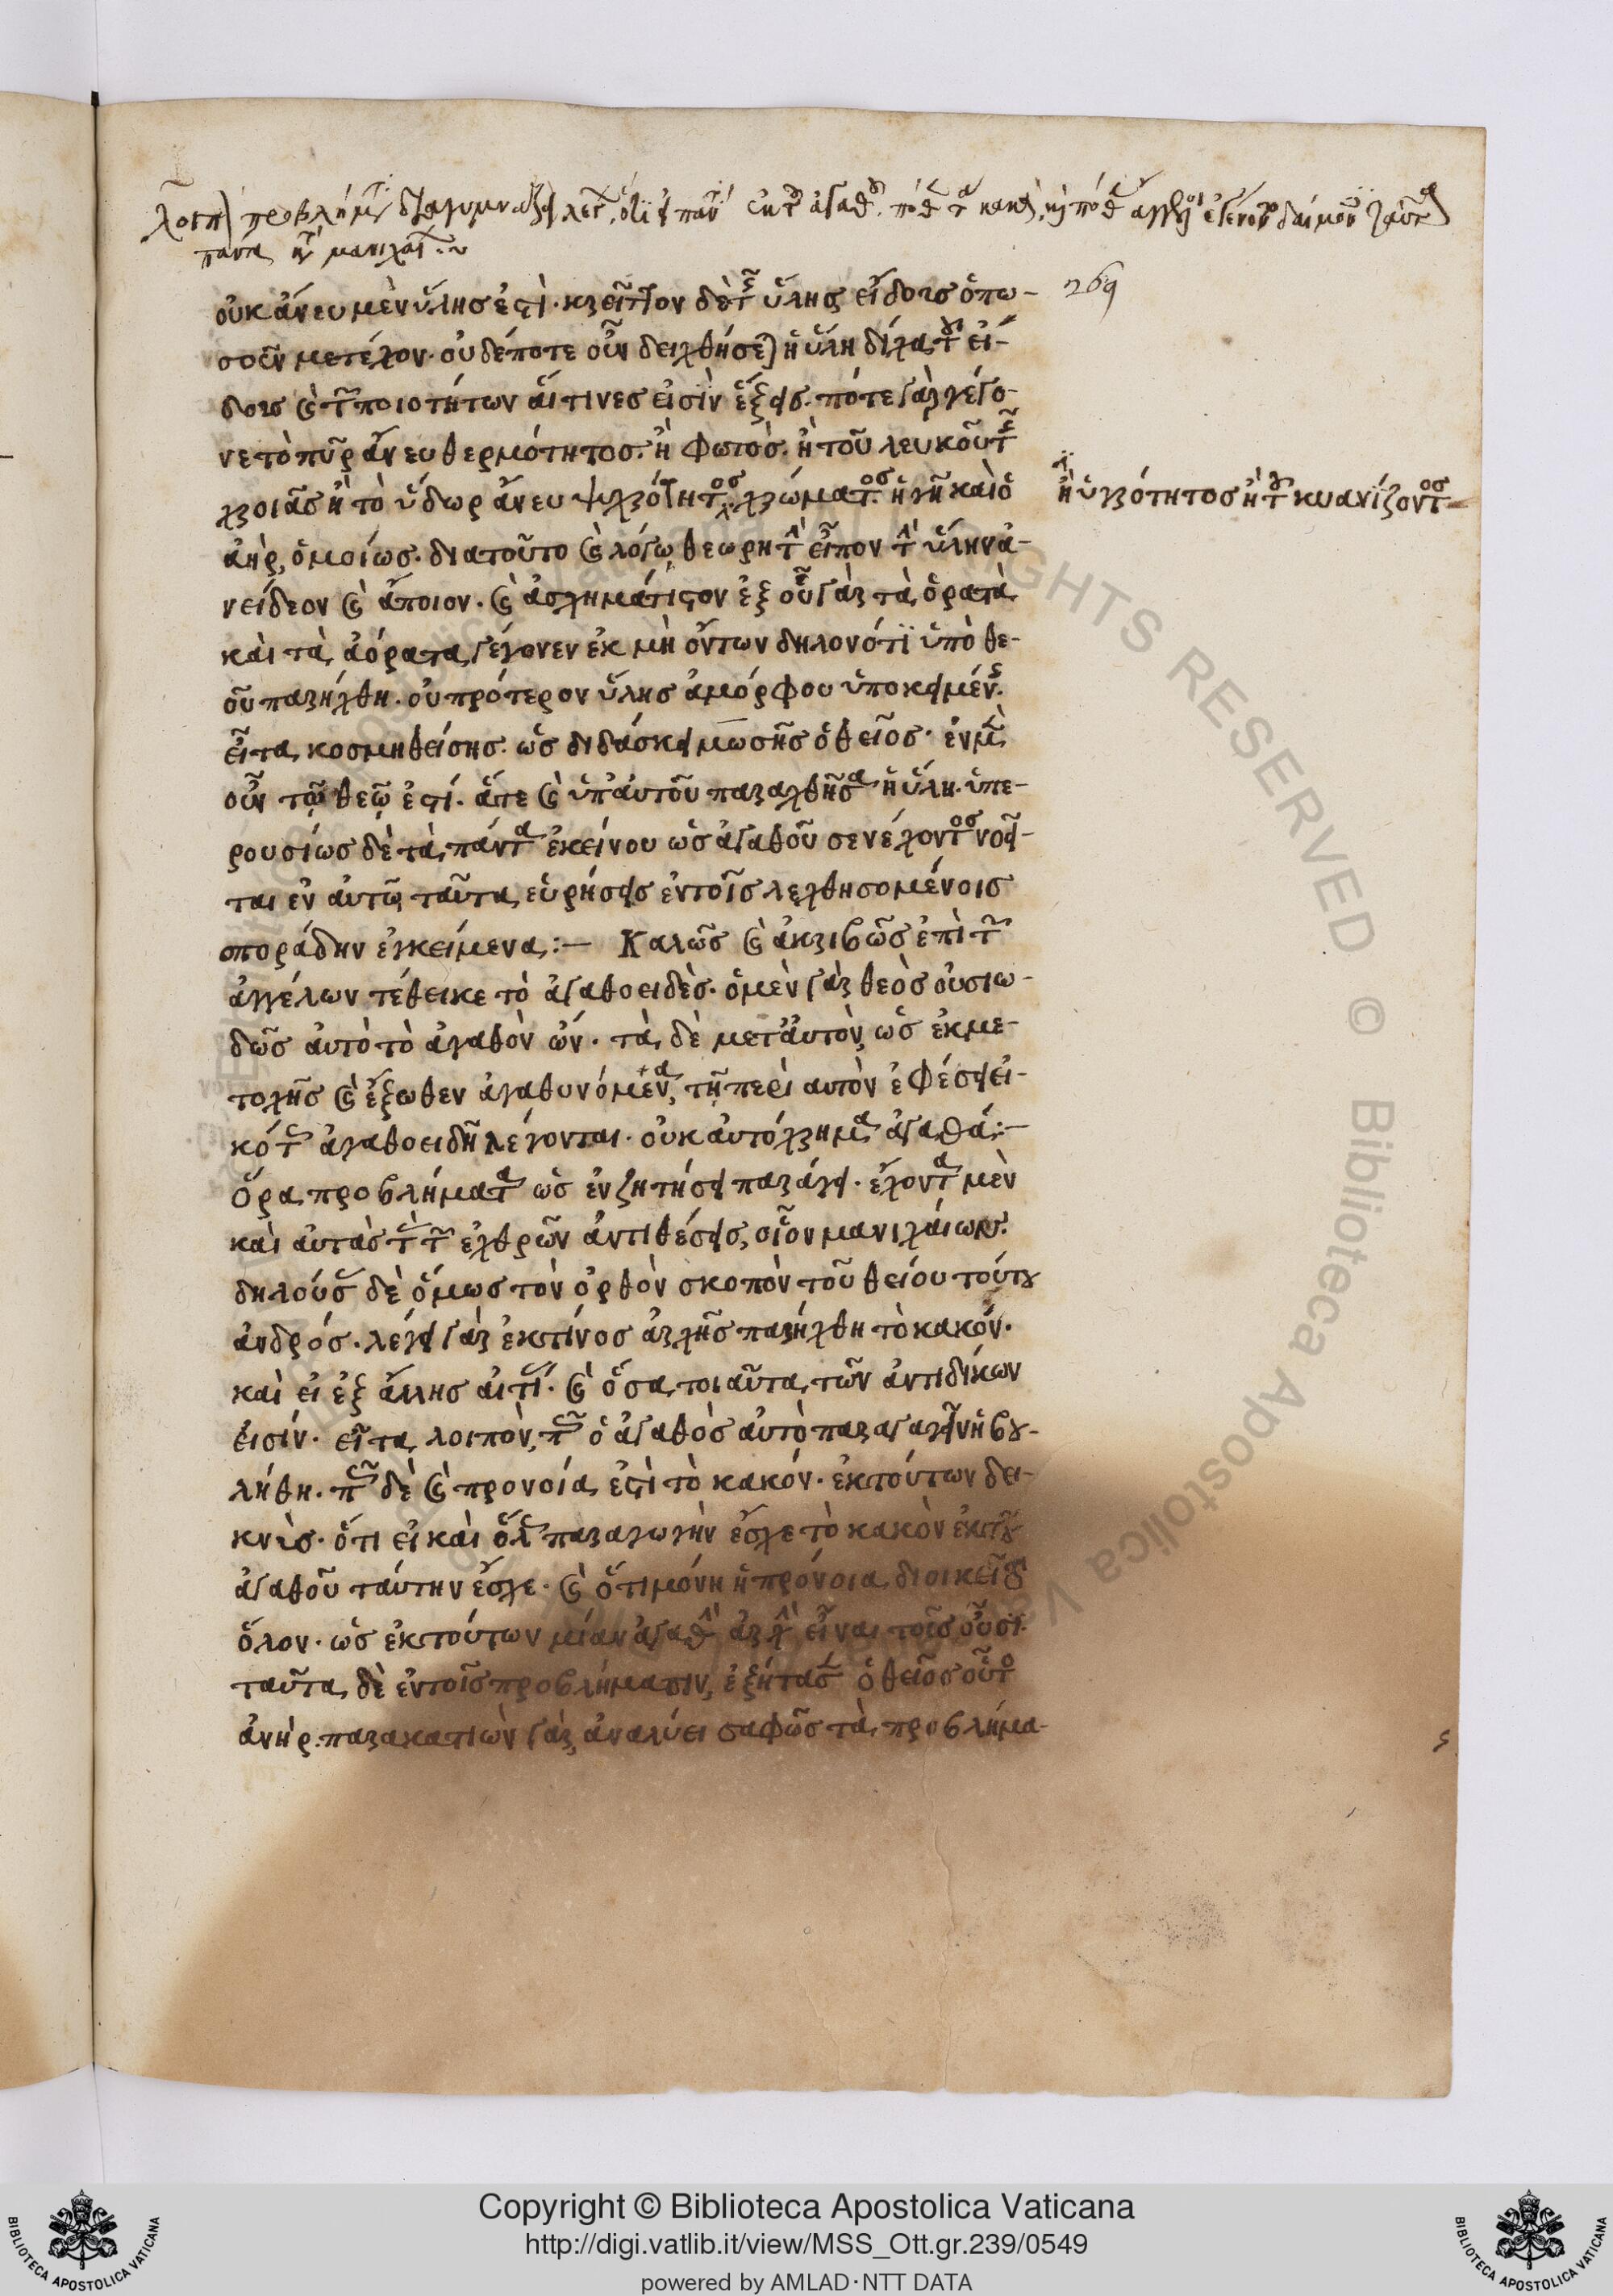 οὐκ ἄνευ μὲν ὕλης ἐστὶ· κρεῖττον δὲ τῆς ὕλης εἴδους ὁπω-
σοῦν μετέχον· οὐδέποτε οὖν δειχθήσεται ἡ ὕλη δίχα τοῦ εἴ-
δους καὶ τῶν ποιοτήτων αἵτινες εἰσὶν ἕξεις· πότε γὰρ γέγο-
νε τὸ πῦρ ἄνευ θερμότητος· ἢ φωτὸς· ἢ τοῦ λευκοῦ τῆς
χροιᾶς ἢ τὸ ὕδωρ ἄνευ ψυχρότητος χρώματος· ἡ γῆ καὶ ὁ
ἢ ὑγρότητος ἢ τοῦ κυανίζοντος
ἀὴρ, ὁμοίως· διατοῦτο καὶ λόγω θεωρητὴν εἶπον τὴν ὕλην ἀ-
νείδεον καὶ ἄποιον· καὶ ἀσχημάτιστον ἐξ οὗ γὰρ τὰ ὁρατὰ
καὶ τὰ ἀόρατα γέγονεν ἐκ μὴ ὄντων δηλονότι ὑπὸ θε-
οῦ παρήχθη· οὐ πρότερον ὕλης ἀμόρφου ὑποκειμένης·
εἶτα κοσμηθείσης· ὡς διδάσκει μωσῆς ὁ θεῖος· ἐν μὲν
οὖν τῷ θεῷ ἐστί· ἅτε καὶ ὑπ' αὐτοῦ παραχθῆσα ἡ ὕλη· ὑπε-
ρουσίως δὲ τὰ πάντα ἐκείνου ὡς ἀγαθοῦ συνέχοντος νοεῖ-
ται ἐν αὐτῷ ταῦτα εὑρήσεις ἐν τοῖς λεχθησομένοις
σποράδην ἐγκείμενα :— Καλῶς καὶ ἀκριβῶς ἐπὶ τῶν
ἀγγέλων τέθεικε τὸ ἀγαθοειδὲς· ὁ μὲν γὰρ θεὸς οὐσιω-
δῶς αὐτὸ τὸ ἀγαθὸν ὤν· τὰ δὲ μετ' αὐτὸν ὡς ἐκ με-
τοχῆς καὶ ἔξωθεν ἀγαθυνόμενα, τῇ περὶ αὐτὸν ἐφέσει εἰ-
κότως ἀγαθοειδῆ λέγονται· οὐκ αὐτόχρημα ἀγαθά :—
Ὅρα προβλήματα ὡς ἐν ζητήσει παράγει· ἔχοντα μὲν
καὶ αὐτὰς τὰς τῶν ἐχθρῶν ἀντιθέσεις, οἷον μανιχαίων·
δηλούσας δὲ ὅμως τὸν ὀρθὸν σκοπὸν τοῦ θείου τούτου
ἀνδρός· λέγει γὰρ ἐκ τίνος ἀρχῆς παρήχθη τὸ κακόν·
καὶ εἰ ἐξ ἄλλης αἰτίας· καὶ ὅσα τοιαῦτα τῶν ἀντιδίκων
εἰσίν· εἶτα λοιπὸν, πῶς ὁ ἀγαθὸς αὐτὸ παραγαγεῖν ἠβου-
λήθη· πῶς δὲ καὶ προνοία ἐστὶ τὸ κακόν· ἐκ τούτων δει-
κνὺς· ὅτι εἰ καὶ ὅλως παραγωγὴν ἔσχε τὸ κακὸν ἐκ τοῦ
ἀγαθοῦ ταύτην ἔσχε· καὶ ὅτι μόνη ἡ πρόνοια διοικεῖ τὸ
ὅλον· ὡς ἐκ τούτων μίαν ἀγαθὴν ἀρχὴν εἶναι τοῖς οὖσι·
ταῦτα δὲ ἐν τοῖς προβλήμασιν, ἐξήτασεν ὁ θεῖος οὗτος
ἀνὴρ· παρακατιὼν γὰρ ἀναλύει σαφῶς τὰ προβλήμα-
269
Copyright © Biblioteca Apostolica Vaticana
http://digi.vatlib.it/view/MSS_Ott.gr.239/0549
powered by AMLAD·NTT DATA
BIBLIOTECA APOSTOLICA VATICANA
BIBLIOTECA APOSTOLICA VATICANA